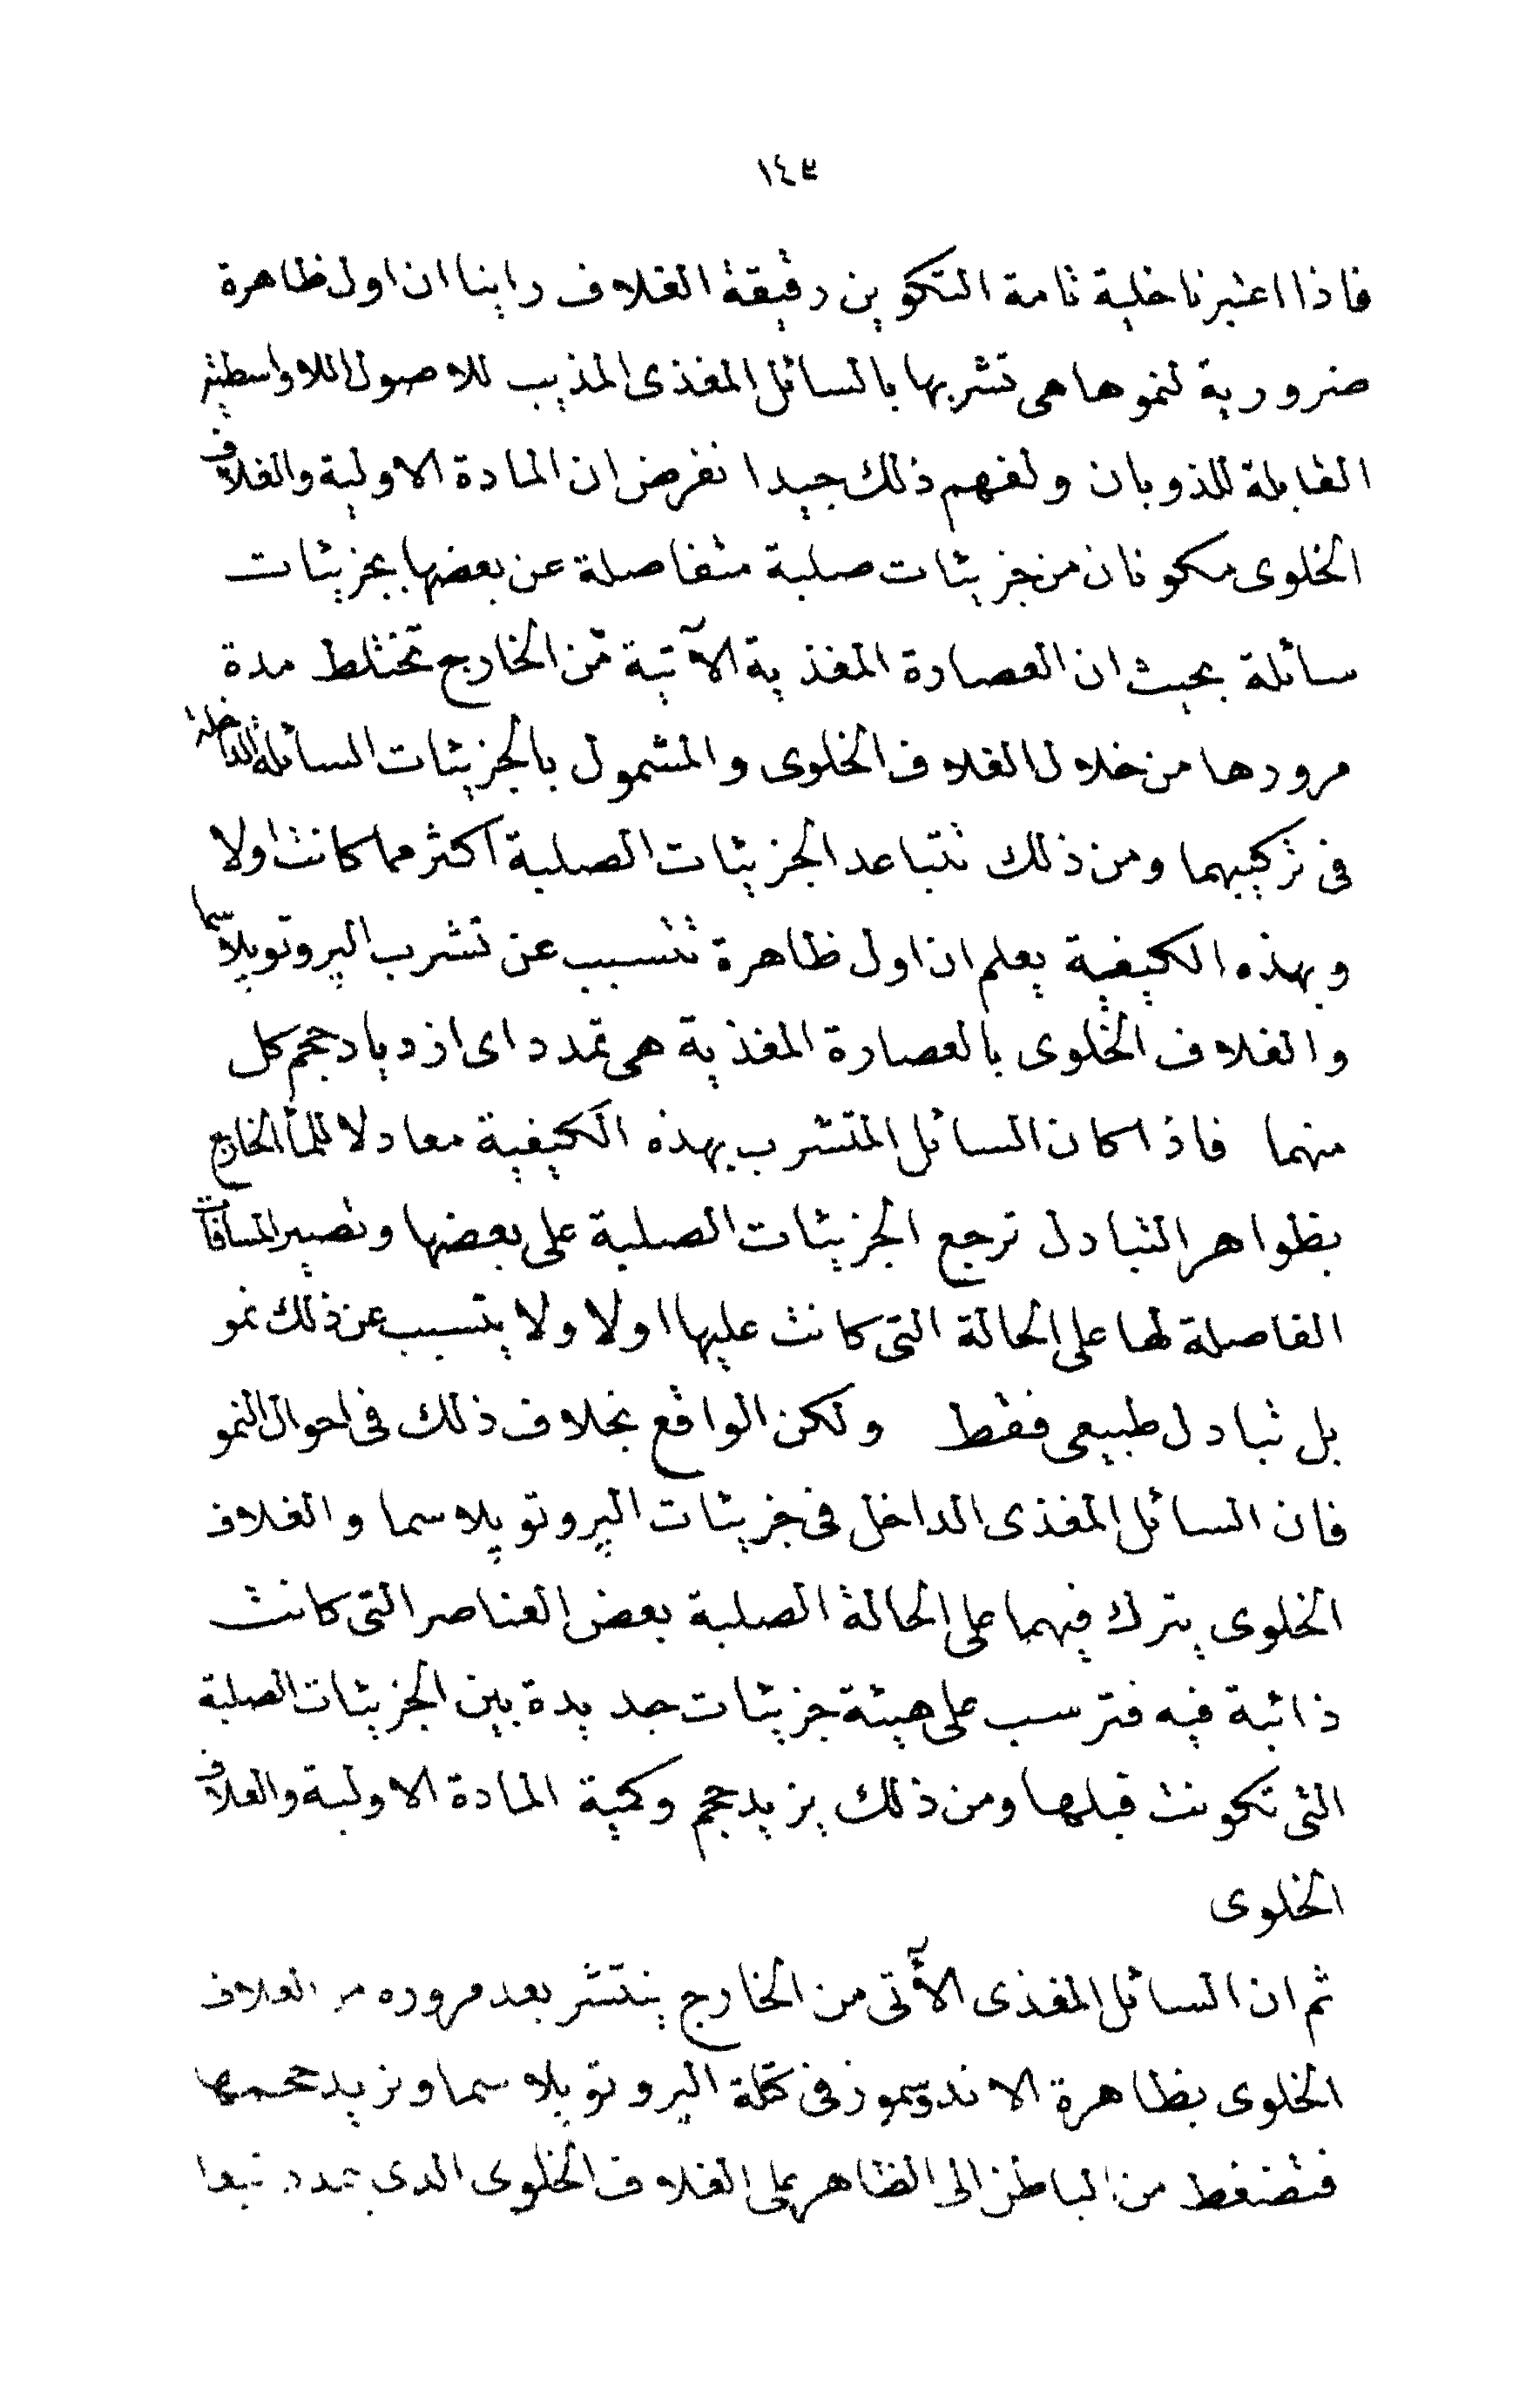 ١٤٥
فاذا اعتبرنا خلية تامة التكوين رقيقة الغلاف راينا ان اول ظاهرة
ضرورية لنموها هى تشربها بالسائل المغذى المذيب للاصول اللاواسطية
القابلة للذوبان ولفهم ذلك جيدا نفرض ان المادة الاولية والغلاف
الخلوى مكونان من جزيئات صلبة متفاصلة عن بعضها بجزيئات
سائلة بحيث ان العصارة المغذية الآتية من الخارج تختلط مدة
مرورها من خلال الغلاف الخلوى والمشمول بالجزيئات السائلة الداخلة
فى تركيبهما ومن ذلك تتباعد الجزيئات الصلبة اكثر مما كانت اولا
وبهذه الكيفية يعلم ان اول ظاهرة تتسبب عن تشرب البروتوپلاسما
والغلاف الخلوى بالعصارة المغذية هى تمدد اى ازدياد حجم كل
منهما فاذا كان السائل المتشرب بهذه الكيفية معادلا للمأ الخارج
بظواهر التبادل ترجع الجزيئات الصلبة على بعضها وتصير المسافات
الفاصلة لها على الحالة التى كانت عليها اولا ولا يتسبب عن ذلك نمو
بل تبادل طبيعى فقط ولكن الواقع بخلاف ذلك فى احوال النمو
فان السائل المغذى الداخل فى جزيئات الپروتوپلاسما والغلاف
الخلوى يترك فيهما على الحالة الصلبة بعض العناصر التى كانت
ذائبة فيه فترسب على هيئة جزيئات جديدة بين الجزيئات الصلبة
التى تكونت قبلها ومن ذلك يزيد حجم وكمية المادة الاولية والغلاف
الخلوى
ثم ان السائل المغذى الآتى من الخارج ينتشر بعد مروره من الغلاف
الخلوى بظاهرة الاندوسموز فى كتلة الپروتوپلاسما ونزيد حجمها
فتضغط من الباطن الى الظاهر على الغلاف الخلوى الذى يتمدد تبعا